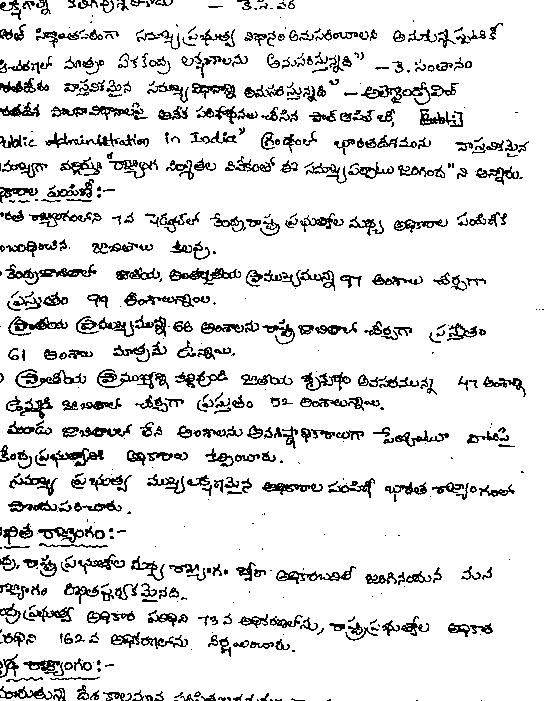 లక్షణాన్ని కలిగివున్న - కె.సి.వేర్
భారత్ సిద్ధాంతపరంగా సమాఖ్య ప్రభుత్వ విధానం అనుసరించాలని అనుకున్నప్పటికీ
ఆచరణలో మాత్రం ఏకకేంద్ర లక్షణాలను అనుసరిస్తున్నది" - కె. సంతానం
భారతదేశం వాస్తవికమైన సమాఖ్య విధానాన్ని అనుసరిస్తున్నది" - అలెగ్జాండ్రోవిచ్
భారతదేశ పాలనా విధానాలపై అనేక పరిశోధనలు చేసిన పాల్ ఆపిల్ బీ,
Public administration in India" గ్రంథంలో భారతదేశమును వాస్తవికమైన
సమాఖ్యగా వర్ణిస్తూ "రాజ్యాంగ నిర్మాతల వివేకంతో ఈ సమాఖ్య ఏర్పాటు జరిగింద"ని అన్నారు.
అధికారాల పంపిణీ :-
భారత రాజ్యాంగంలోని 7వ షెడ్యూల్‌లో కేంద్ర, రాష్ట్ర ప్రభుత్వాల మధ్య అధికారాల పంపిణీకి
సంబంధించిన జాబితాలు కలవు.
కేంద్ర జాబితాలో జాతీయ, అంతర్జాతీయ ప్రాముఖ్యమున్న 97 అంశాలు చేర్చగా
ప్రస్తుతం 99 అంశాలున్నాయి.
ప్రాంతీయ ప్రాముఖ్యమున్న 66 అంశాలను రాష్ట్ర జాబితాలో చేర్చగా ప్రస్తుతం
61 అంశాలు మాత్రమే ఉన్నాయి.
ప్రాంతీయ ప్రాముఖ్యాన్ని కల్గివుండి జాతీయ శ్రద్ధ అవసరమున్న 47 అంశాల్ని
ఉమ్మడి జాబితాలో చేర్చగా ప్రస్తుతం 52 అంశాలున్నాయి.
మూడు జాబితాలలో లేని అంశాలను అవశిష్టాధికారాలుగా పేర్కొంటూ వాటిపై
కేంద్ర ప్రభుత్వానికి అధికారాలు కల్పించారు.
సమాఖ్య ప్రభుత్వ ముఖ్య లక్షణమైన అధికారాల పంపిణీ భారత రాజ్యాంగంలో
పొందుపరిచారు.
లిఖిత రాజ్యాంగం :-
కేంద్ర, రాష్ట్ర ప్రభుత్వాల మధ్య రాజ్యాంగం ద్వారా అధికార బదిలీ జరిగినందున మన
రాజ్యాంగం లిఖితపూర్వకమైనది.
కేంద్ర ప్రభుత్వ అధికార పరిధిని 73వ అధికరణలోను, రాష్ట్ర ప్రభుత్వాల అధికార
పరిధిని 162వ అధికరణలోను నిర్ణయించారు.
రాజ్యాంగం :-
మారుతున్న దేశ కాలమాన